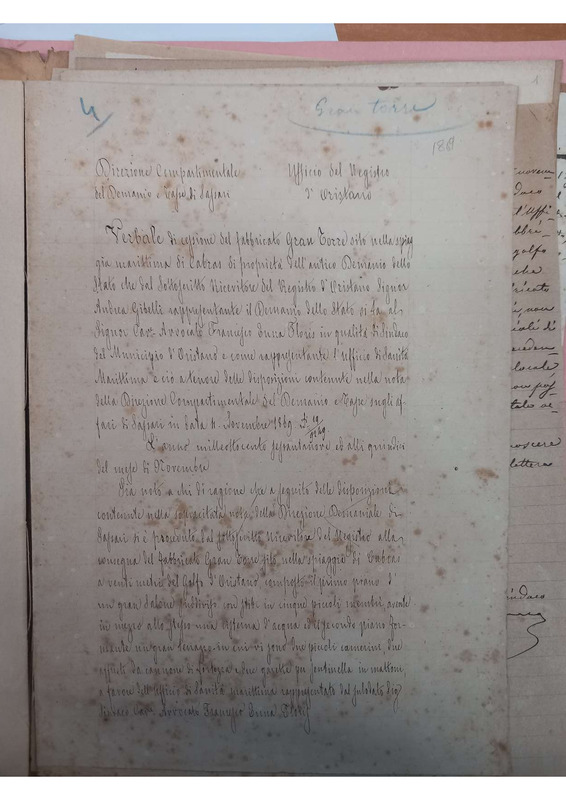 4
Gran torre
1
Direzione Compartimentale
del Demanio e Tasse di Sassari
Ufficio del Registro
d' Oristano
Verbale di cessione del fabbricato Gran Torre sito nella spiag
gia marittima di Cabras di proprietà dell'antico Demanio dello
Stato che dal Sottoscritto Ricevitore del Registro d'Oristano Signor
Andrea Gibelli rappresentante il Demanio dello Stato si fa al
Signor Cavr Avvocato Francesco Enna Floris in qualità di Sindaco
del Municipio d'Oristano e come rappresentante l'Ufficio di Sanità
Marittima e ciò a tenore delle disposizioni contenute nella nota
della Direzione Compartimentale del Demanio e Tasse sugli af
fari di Sassari in data 4 Novembre 1869
L'anno milleottocento sessantanove ed alli quindici
del mese di Novembre
Sia noto a chi di ragione che a seguito delle disposizioni
contenute nella sovracitata nota della Direzione Demaniale di
Sassari si è proceduto dal sottoscritto Ricevitore del Registro alla
consegna del fabbricato Gran Torre sito nella spiaggia di Cabras
a venti metri dal Golfo d'Oristano composto il primo piano d'
un gran Salone suddiviso con in cinque piccoli membri, avente
in mezzo allo stesso una cisterna d'acqua ed il secondo piano for
mante un gran terrazzo in cui vi sono due piccoli camerini, due
da cannone di fortezza e due garette per sentinella in mattoni,
a favore dell'Ufficio di Sanità marittima rappresentato dal sulodato Sig
Sindaco Cavr Avvocato Francesco Enna Floris